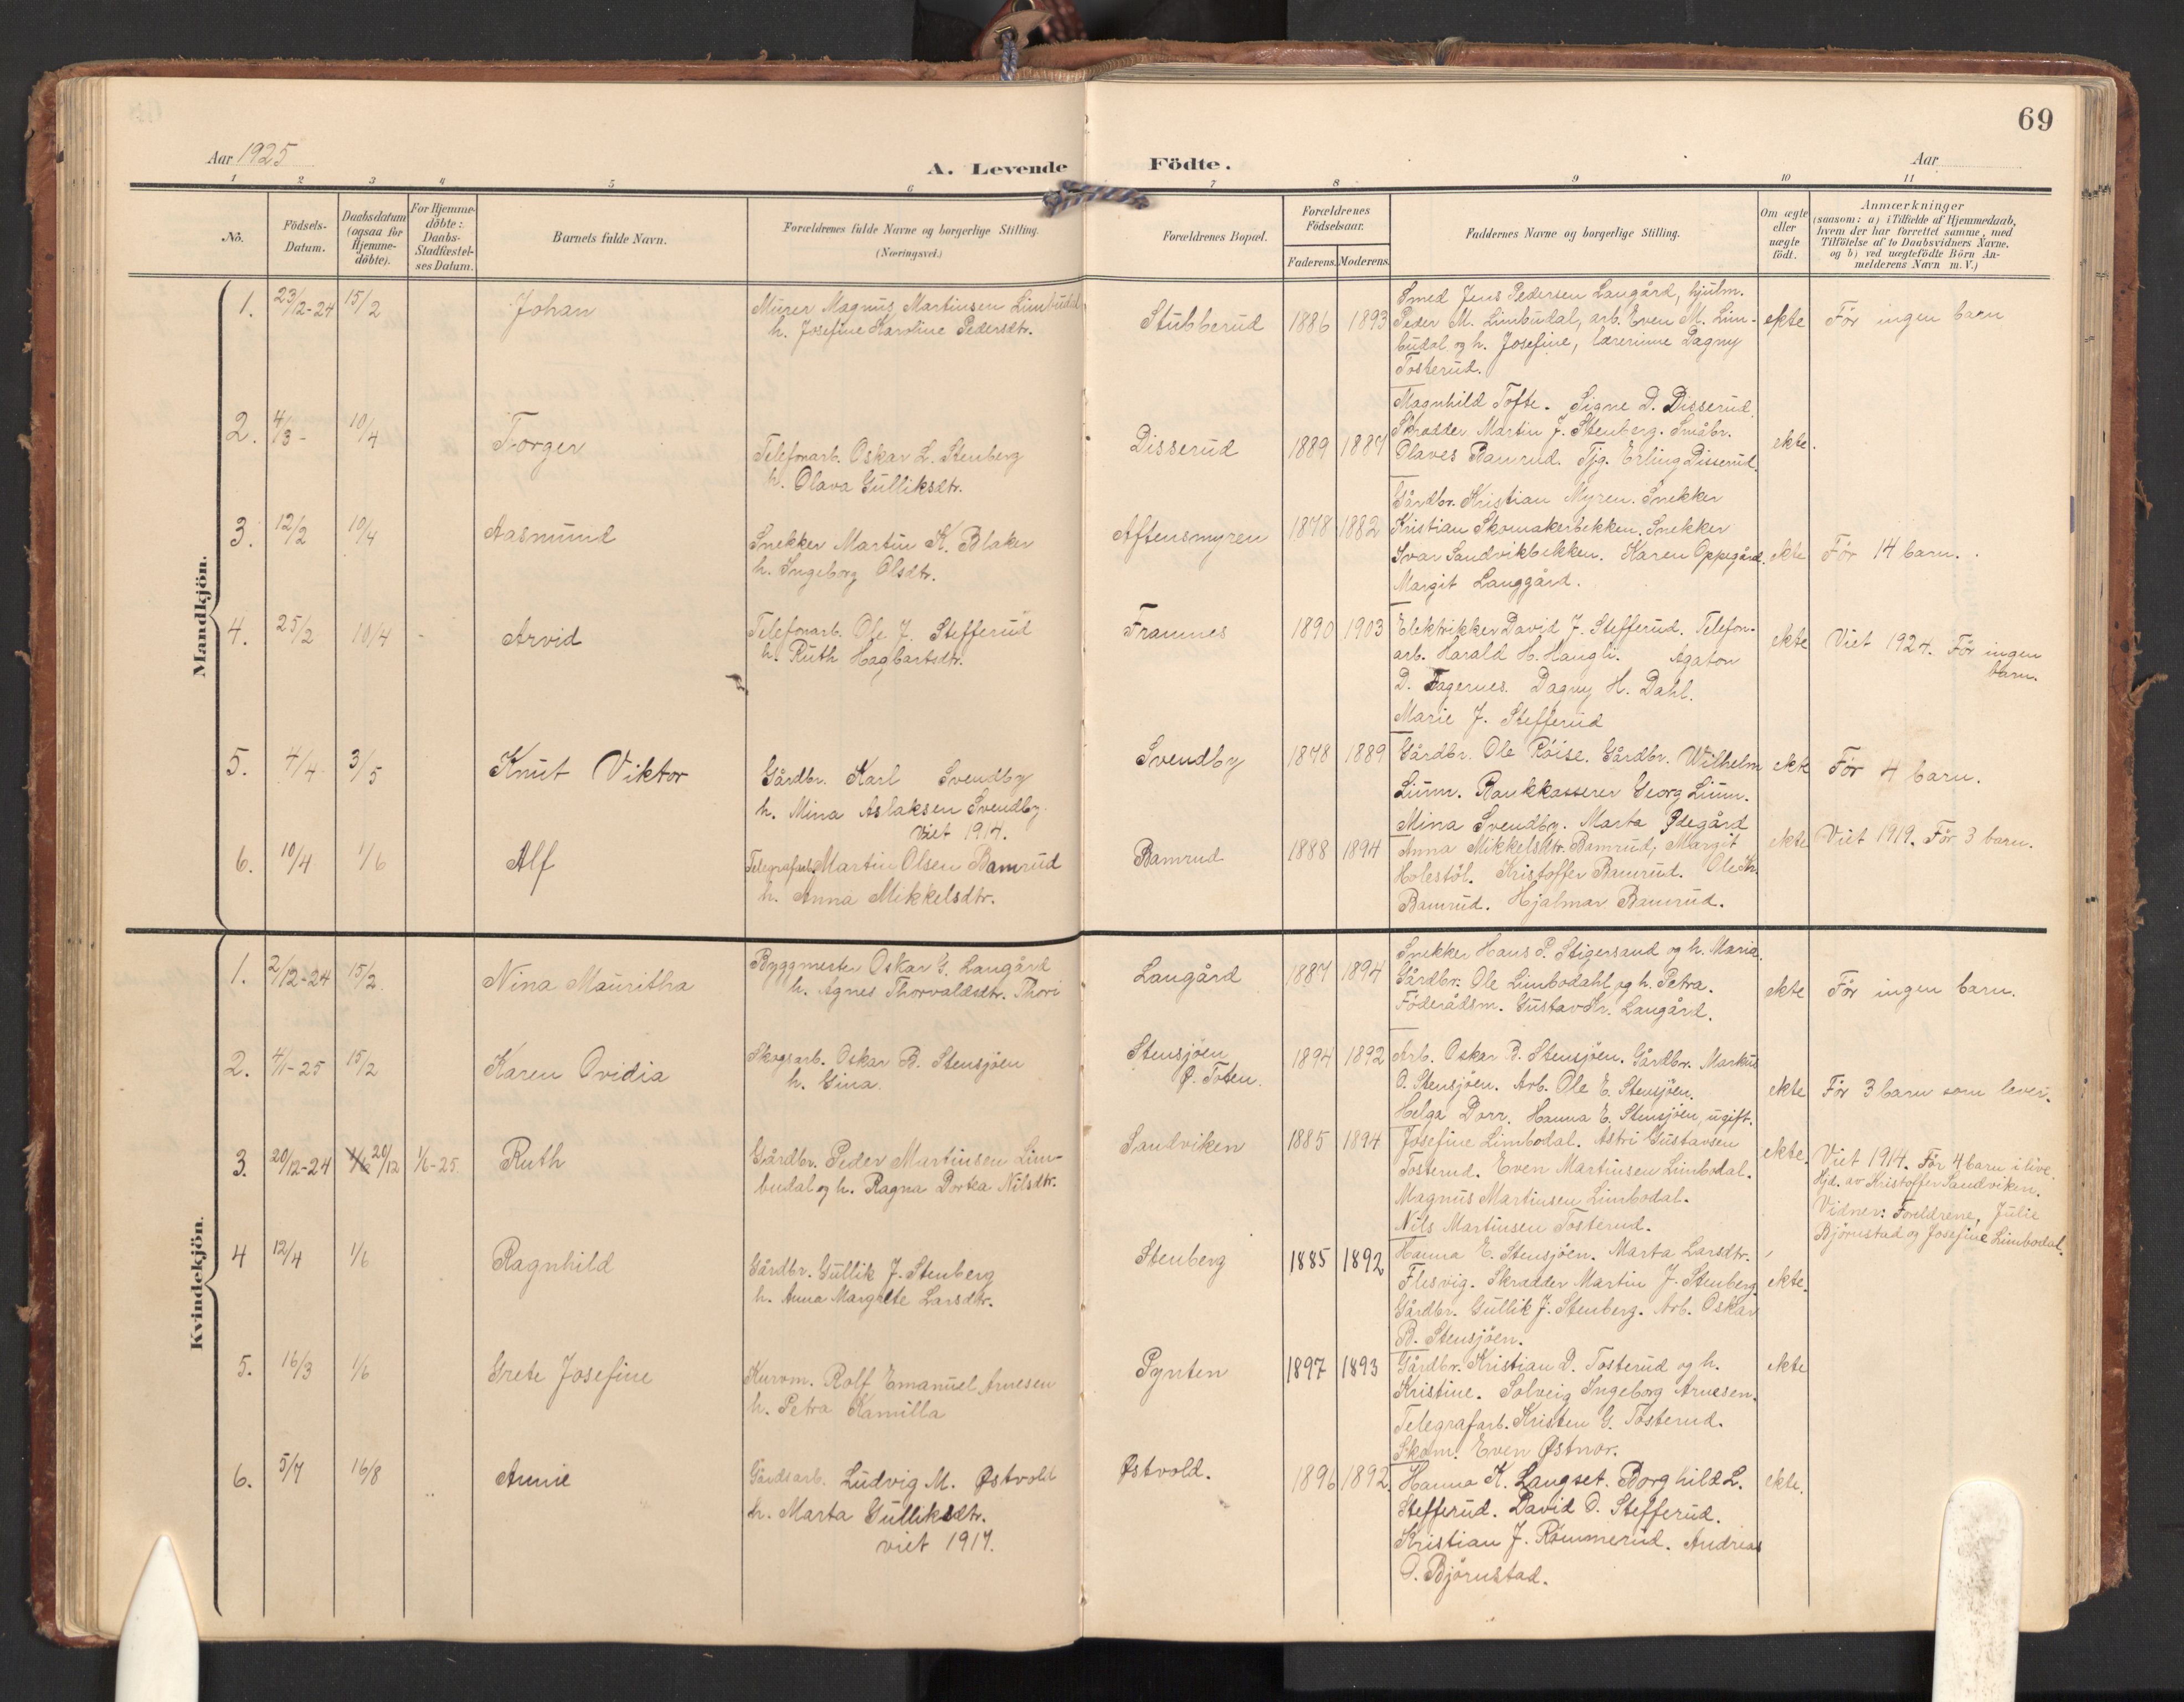 69
Aar 1925
A. Levende Födte.
Aar
1 2 3 4 5 6 7 8 9 10 11
No.
Födsels-
Datum.
Daabsdatum
(ogsaa for
Hjemme-
döbte).
For Hjemme-
döbte:
Daabs-
Stadfæstel-
ses Datum.
Barnets fulde Navn.
Forældrenes fulde Navne og borgerlige Stilling.
(Næringsvei.)
Forældrenes Bopæl.
Forældrenes
Födselsaar.
Faderens. Moderens.
Faddernes Navne og borgerlige Stilling.
Om ægte
eller
uægte
födt.
Anmærkninger
(saasom: a) i Tilfælde af Hjemmedaab,
hvem der har forrettet samme, med
Tilföielse af to Daabsvidners Navne,
og b) ved uægtefödte Börn An-
melderens Navn m. V.)
Mandkjön.
1. 23/12-24 15/2 Johan
Murer Magnus Martinsen Limbudal
h. Josefine Karoline Pedersdtr.
Stubberud 1886 1893
Smed Jens Pedersen Laugård, hjulm.
Peder M. Limbudal, arb. Even M. Lim-
budal og h. Josefine, lærerinne Dagny
Tosterud.
ekte För ingen barn
2. 4/3- 10/4 Torger
Telefonarb. Oskar L. Stenberg
h. Olava Gulliksdtr.
Disserud 1889 1887
Magnhild Tofte. Signe D. Disserud.
Skrædder Martin J. Stenberg. Småbr.
Olaves Bamrud. Tjg. Erling Disserud.
ekte.
3. 12/2 10/4 Aasmund
Snekker Martin K. Blaker
h. Ingeborg Olsdtr.
Aftensmyren 1878 1882
Gårdbr. Kristian Myren. Snekker
Kristian Skomakerbekken. Snekker
Ivar Sandvikbekken. Karen Oppegård.
Margit Langgård.
ekte För 14 barn.
4. 25/2 10/4 - Arvid
Telefonarb. Ole J. Stefferud
h. Ruth Hagbartsdtr.
Framnes 1890 1903
Elektrikker David J. Stefferud. Telefon-
arb. Harald H. Haugli. Agaton
D. Fagernes. Dagny H. Dahl.
Marie J. Stefferud
ekte Viet 1924. För ingen
barn.
5. 4/4 3/5 Knut Viktor
Gårdbr. Karl Svendby
h. Mina Aslaksen Svendby.
Viet 1914.
Svendby 1878 1889
Gårdbr. Ole Röise. Gårdbr. Wilhelm
Lium. Bankkasserer Georg Lium.
Mina Svendby. Marta Ødegård
ekte För 4 barn.
6. 10/4 1/6 Alf
Telegrafarb. Martin Olsen Bamrud
h. Anna Mikkelsdtr.
Bamrud 1888 1894
Anna Mikkelsdtr. Bamrud, Margit
Holestöl. Kristoffer Bamrud. Ole Kr.
Bamrud. Hjalmar Bamrud.
ekte Viet 1919. För 3 barn.
Kvindekjön.
1. 2/12-24 15/2. Nina Mauritha
Byggmester Oskar G. Laugård
h. Agnes Thorvaldsdtr. Thori
Laugård 1887 1894
Snekker Hans P. Stigersand og h. Maria.
Gårdbr. Ole Limbodahl og h. Petra.
Föderådsm. Gustav Kr. Laugård.
ekte För ingen barn.
2. 4/1-25 15/2 Karen Ovidia
Skogsarb. Oskar B. Stensjöen
h. Gina.
Stensjöen
Ø. Toten. 1894 1892
Arb. Oskar B. Stensjöen. Gårdbr. Markus
O. Stensjöen. Arb. Ole E. Stensjöen.
Helga Dorr. Hanna E. Stensjöen, ugift.
ekte För 3 barn som lever.
3. 20/12-24 1/6 20/12 1/6-25. Ruth
Gårdbr. Peder Martinsen Lim-
budal og h. Ragna Dorka Nilsdtr.
Sandviken 1885 1894
Josefine Limbodal. Astri Gustavsen
Tosterud. Even Martinsen Limbodal.
Magnus Martinsen Limbodal.
Nils Martinsen Tosterud.
ekte. Viet 1914. För 4 barn i live.
Hjd. av Kristoffer Sandviken.
Vidner: Foreldrene, Julie
Björnstad og Josefine Limbodal.
4 12/4 1/6 Ragnhild
Gårdbr. Gullik J. Stenberg
h. Anna Margrete Larsdtr.
Stenberg 1885 1892
Hanna E. Stensjöen. Marta Larsdtr.
Flesvig. Skrædder Martin J. Stenberg.
Gårdbr. Gullik J. Stenberg. Arb. Oskar
B. Stensjöen.
ekte.
5. 16/3 1/6 Grete Josefine
Kurvm. Rolf Emanuel Arnesen
h. Petra Kamilla
Pynten 1897 1893
Gårdbr. Kristian D. Tosterud og h.
Kristine. Solveig Ingeborg Arnesen.
Telegrafarb. Kristen G. Tosterud.
Skom. Even Østnor.
ekte
6. 5/7 16/8 Annie
Gårdsarb. Ludvig M. Østvold
h. Marta Gulliksdtr.
viet 1917.
Østvold. 1896 1892.
Hanna K. Langset. Borghild L.
Stefferud. David O. Stefferud.
Kristian J. Römmerud. Andreas
O. Björnstad.
ekte.